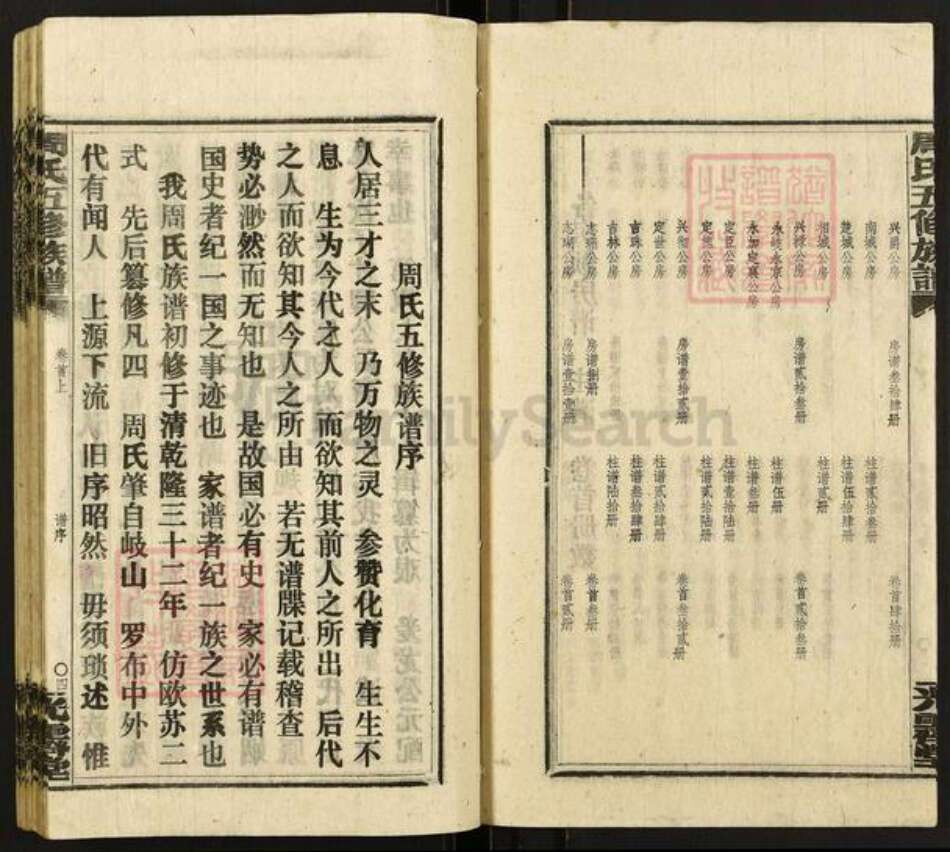 周氏五修族譜
兴爵公房 房谱叁拾肆册 卷首肆拾册
南城公房 柱谱贰拾叁册
楚城公房 柱谱伍拾肆册
相城公房 柱谱贰册
兴禄公房 房谱贰拾叁册 卷首贰拾叁册
永岐永京公房 柱谱伍册
永加定真公房 柱谱叁册
定臣公房 柱谱壹拾陆册
定楚公房 柱谱贰拾陆册
兴彻公房 房谱壹拾贰册 卷首叁拾贰册
定世公房 柱谱贰拾肆册
吉珠公房 柱谱叁拾肆册
吉林公房 柱谱陆拾册
志瑚公房 房谱捌册 卷首贰册
志瑚公房 房谱壹拾壹册 卷首贰册
周氏五修族谱序
人居三才之末 乃万物之灵 参赞化育 生生不
息 生为今代之人 而欲知其前人之所出 后代
之人而欲知其今人之所由 若无谱牒记载稽查
势必渺然而无知也 是故国必有史 家必有谱
国史者纪一国之事迹也 家谱者纪一族之世系也
我周氏族谱初修于清乾隆三十二年 仿欧苏二
式 先后纂修凡四 周氏肇自岐山 罗布中外
代有闻人 上源下流 旧序昭然 毋须琐述 惟
周氏五修族譜
卷首上
谱序
〇四
FamilySearch